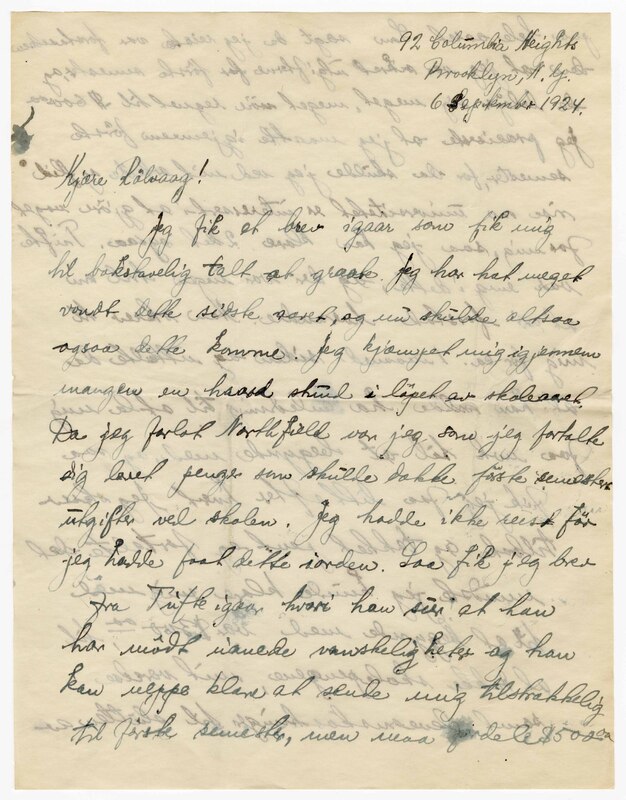 92 Columbia Heights
Brooklyn, N. Y.
6 September 1924.
Kjære Rölvaag!
Jeg fik et brev igaar som fik mig
til bokstavelig talt at graate. Jeg har hat meget
vondt dette sidste aaret, og nu skulde altsaa
ogsaa dette komme. Jeg kjæmpet mig igjennem
mangen en haard stund i löpet av skoleaaret.
Da jeg forlot Northfield var jeg som jeg fortalte
dig lovet penger som skulde dække förste semesters
utgifter ved skolen. Jeg hadde ikke reist för
jeg hadde faat dette iorden. Saa fik jeg brev
fra Tufte igaar hvori han sier at han
har mödt uanede vanskeligheter og han
kan neppe klare at sende mig tilstrækkelig
til förste semester, men maa